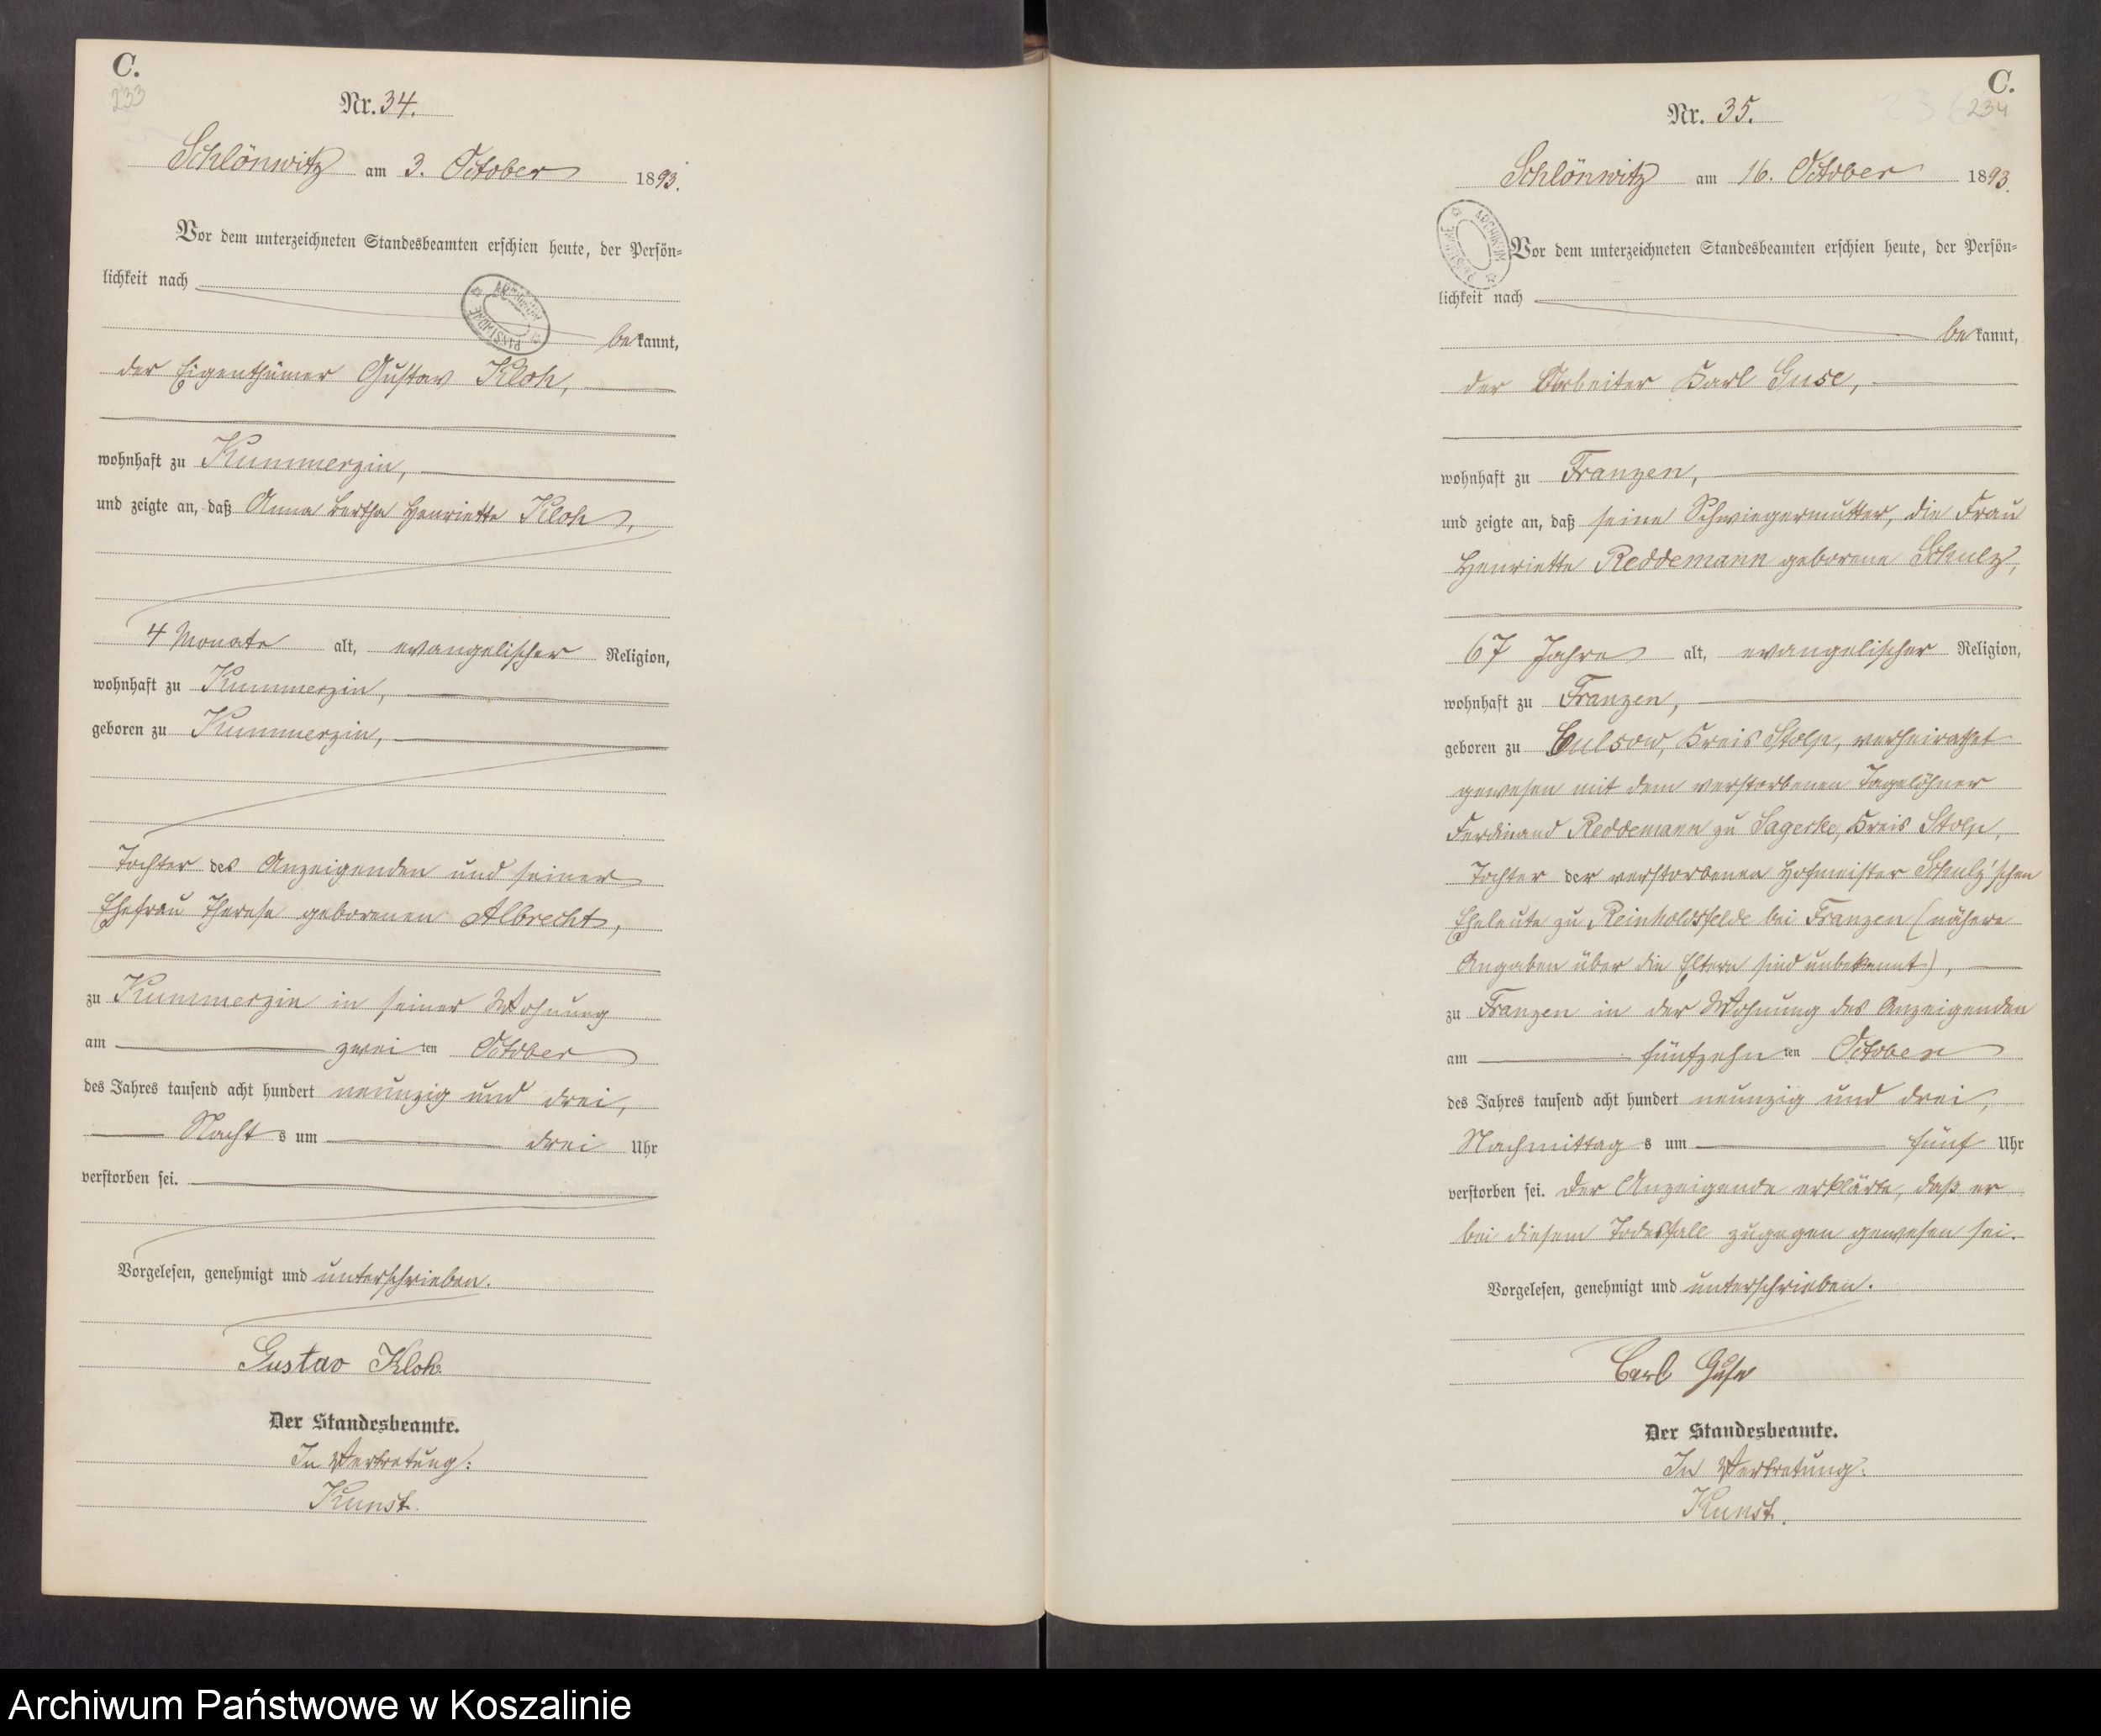 C.
233
Nr. 34.
Schlönwitz am 3. October 1893.
Vor dem unterzeichneten Standesbeamten erschien heute, der Persön-
lichkeit nach
bekannt,
der Eigenthümer Gustav Kloh,
wohnhaft zu Kummerzin,
und zeigte an, daß Anna Bertha Henriette Kloh,
4 Monate alt, evangelischer Religion,
wohnhaft zu Kummerzin,
geboren zu Kummerzin,
Tochter des Anzeigenden und seiner
Ehefrau Therese geborenen Albrecht,
zu Kummerzin in seiner Wohnung
am zwei ten October
des Jahres tausend acht hundert neunzig und drei,
Nacht s um drei Uhr
verstorben sei.
Vorgelesen, genehmigt und unterschrieben.
Gustav Kloh
Der Standesbeamte.
In Vertretung:
Kunst.
C.
234
Nr. 35.
Schlönwitz am 16. October 1893.
ARCHIWUM PAŃSTWOWE
Vor dem unterzeichneten Standesbeamten erschien heute, der Persön-
lichkeit nach
bekannt,
der Arbeiter Karl Guse,
wohnhaft zu Franzen,
und zeigte an, daß seine Schwiegermutter, die Frau
Henriette Reddemann geborene Schulz,
67 Jahre alt, evangelischer Religion,
wohnhaft zu Franzen,
geboren zu Culsow, Kreis Stolp, verheirathet
gewesen mit dem verstorbenen Tagelöhner
Ferdinand Reddemann zu Sagerke, Kreis Stolp,
Tochter der verstorbenen Hofmeister Schulz'schen
Eheleute zu Reinholdsfelde bei Franzen (nähere
Angaben über die Eltern sind unbekannt),
zu Franzen in der Wohnung des Anzeigenden
am fünfzehn ten October
des Jahres tausend acht hundert neunzig und drei,
Nachmittag s um fünf Uhr
verstorben sei. Der Anzeigende erklärte, daß er
bei diesem Todesfall zugegen gewesen sei.
Vorgelesen, genehmigt und unterschrieben.
Carl Guse
Der Standesbeamte.
In Vertretung:
Kunst.
Archiwum Państwowe w Koszalinie